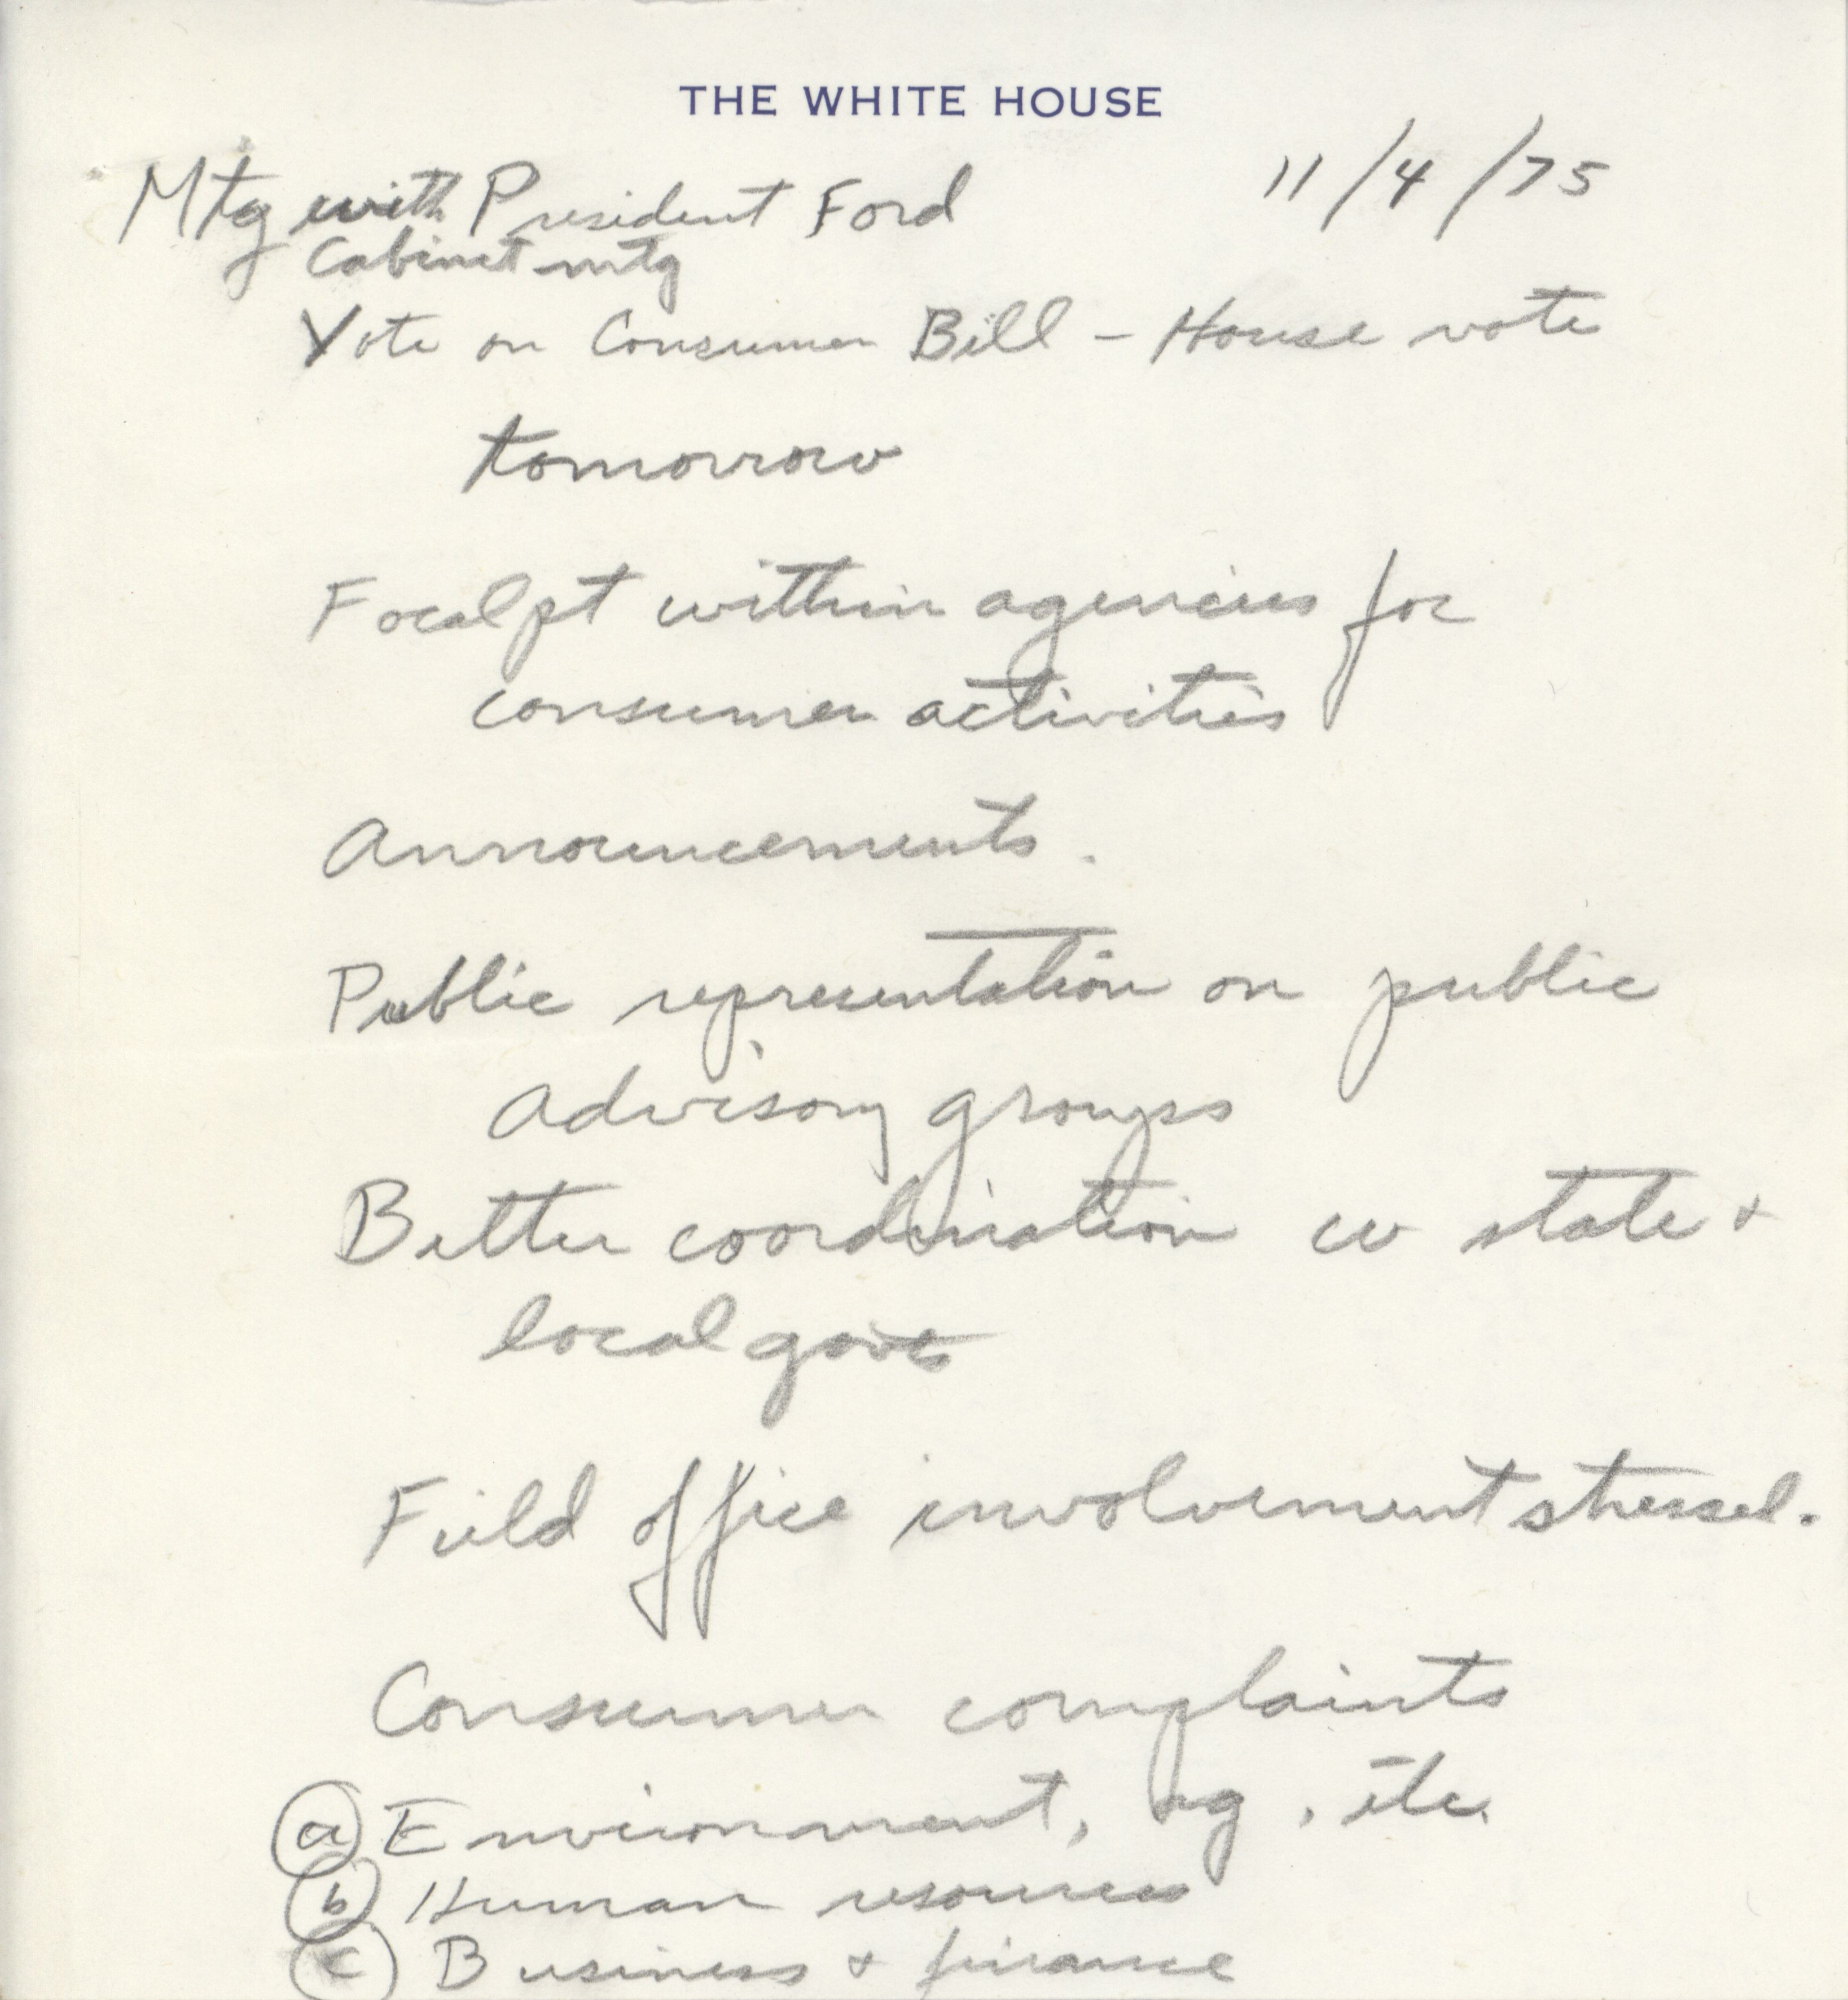 THE WHITE HOUSE
Mtg with President Ford 11/4/75
Cabinet mtg
Vote on Consumer Bill – House vote
tomorrow
Focal pt within agencies for
consumer activities
Announcements.
Public representation on public
advisory groups
Better coordination w state +
local govts
Field office involvement stressed.
Consumer complaints
(a) Environment, ag, etc.
(b) Human resources
(c) Business + finance